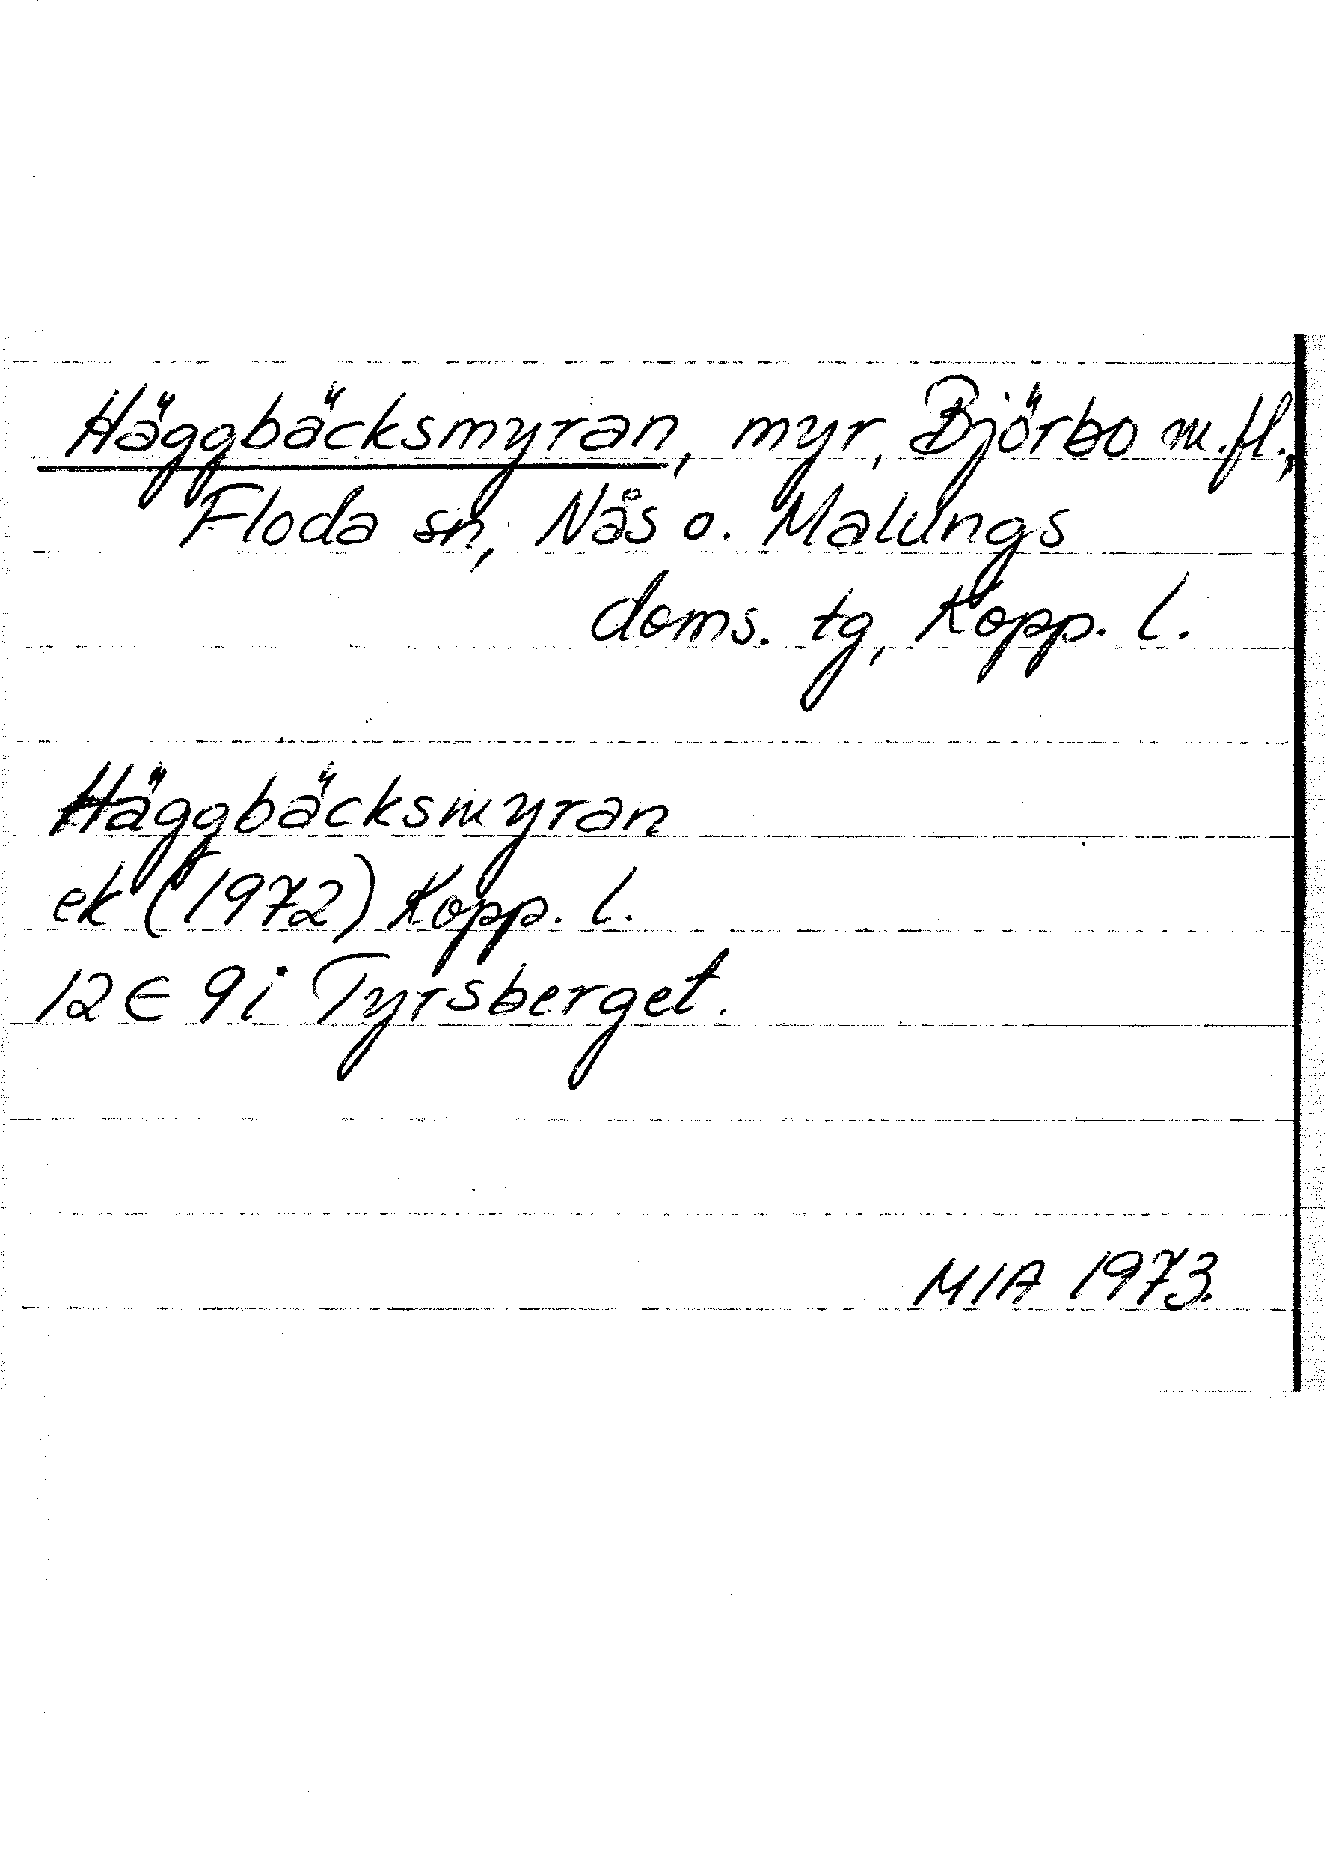 Häggbäcksmyran, myr, Björbo m.fl.,
Floda sn, Nås o. Malungs
doms. tg, Kopp. l.
Häggbäcksmyran
ek (1972) Kopp. l.
12E 9i Tyrsberget.
MIA 1973.